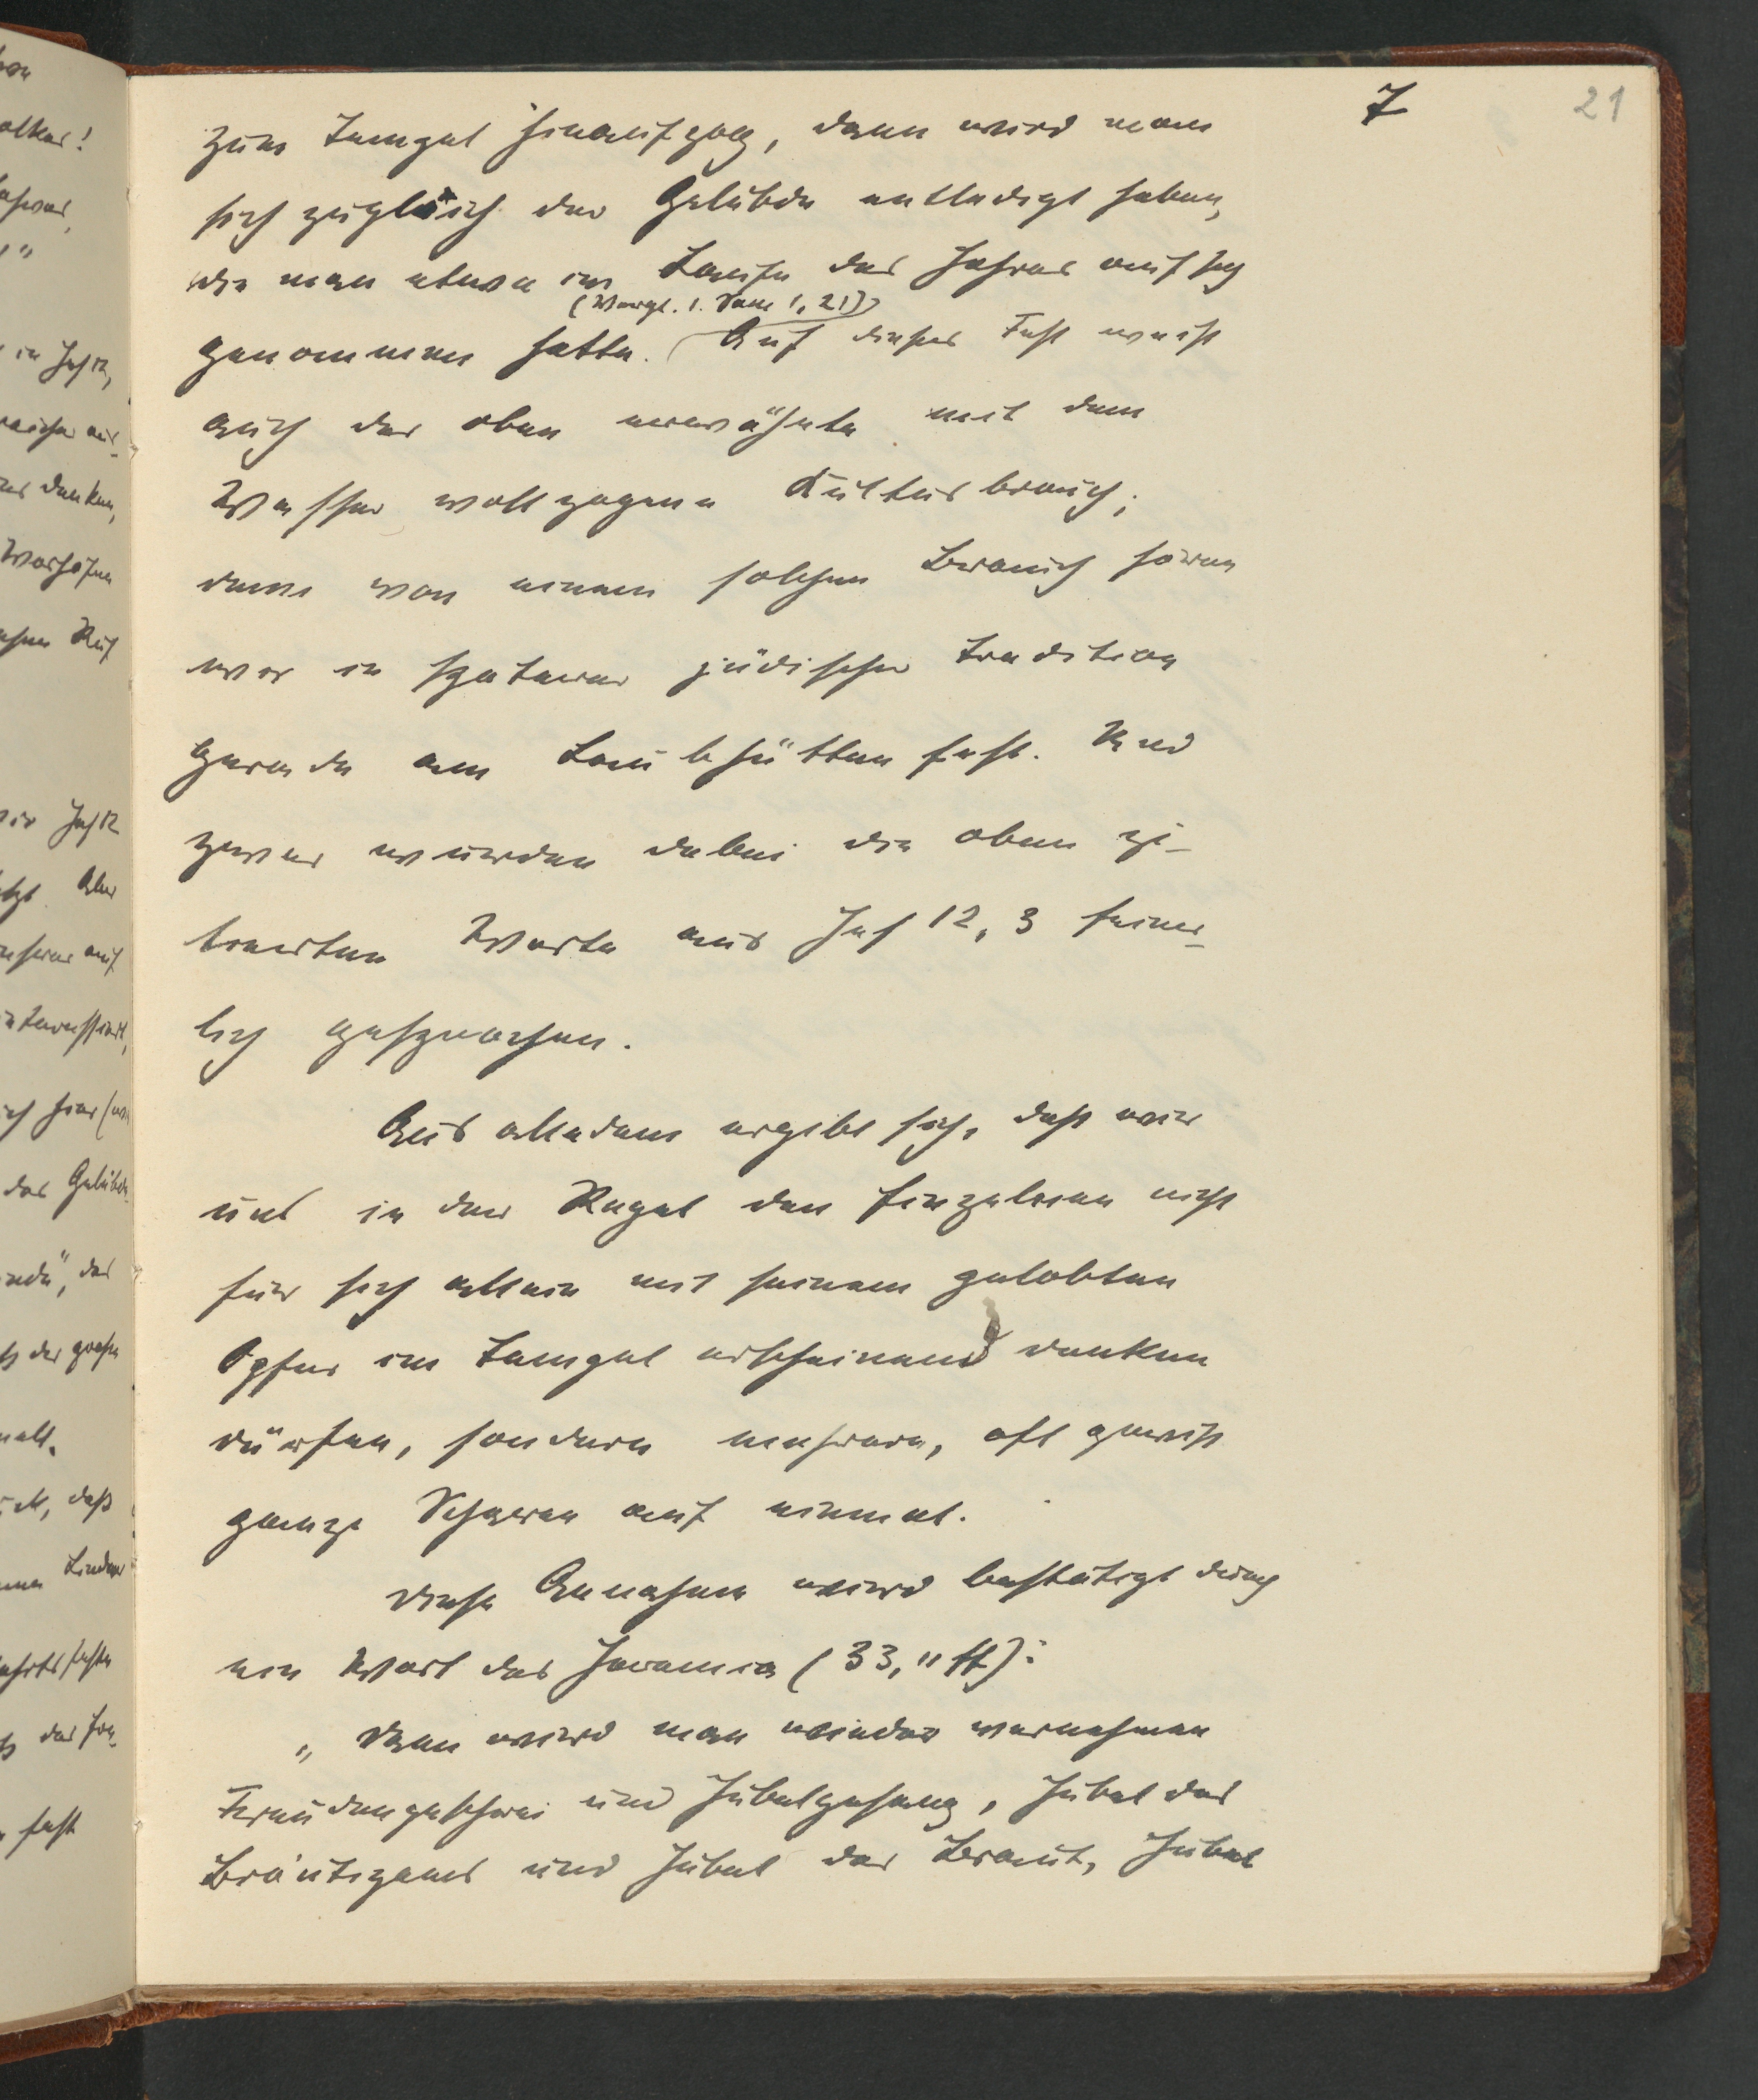 7
21
zum Tempel hinaufzog, dann wird man
sich zugleich der Gelübde entledigt haben,
die man etwa im Laufe des Jahres auf sich
(Vergl. 1. Sam 1, 21)
genommen hatte. Auf dieses Fest weist
auch der oben erwähnte mit dem
Wasser vollzogene Kultusbrauch;
denn von einem solchen Brauch hören
wir in späterer jüdischer Tradition
gerade am Laubhüttenfest. Und
zwar wurden dabei die oben zi-
tierten Worte aus Jes 12, 3 feier-
lich gesprochen.
Aus alledem ergibt sich, dass wir
uns in der Regel den Einzelnen nicht
für sich allein mit seinem gelobten
Opfer im Tempel erscheinend denken
dürfen, sondern mehrere, oft gewiss
ganze Scharen auf einmal.
Diese Annahme wird bestätigt durch
ein Wort des Jeremia (33, 11 ff):
„Dann wird man wieder vernehmen
Freudengeschrei und Jubelgesang, Jubel des
Bräutigams und Jubel der Braut, Jubel